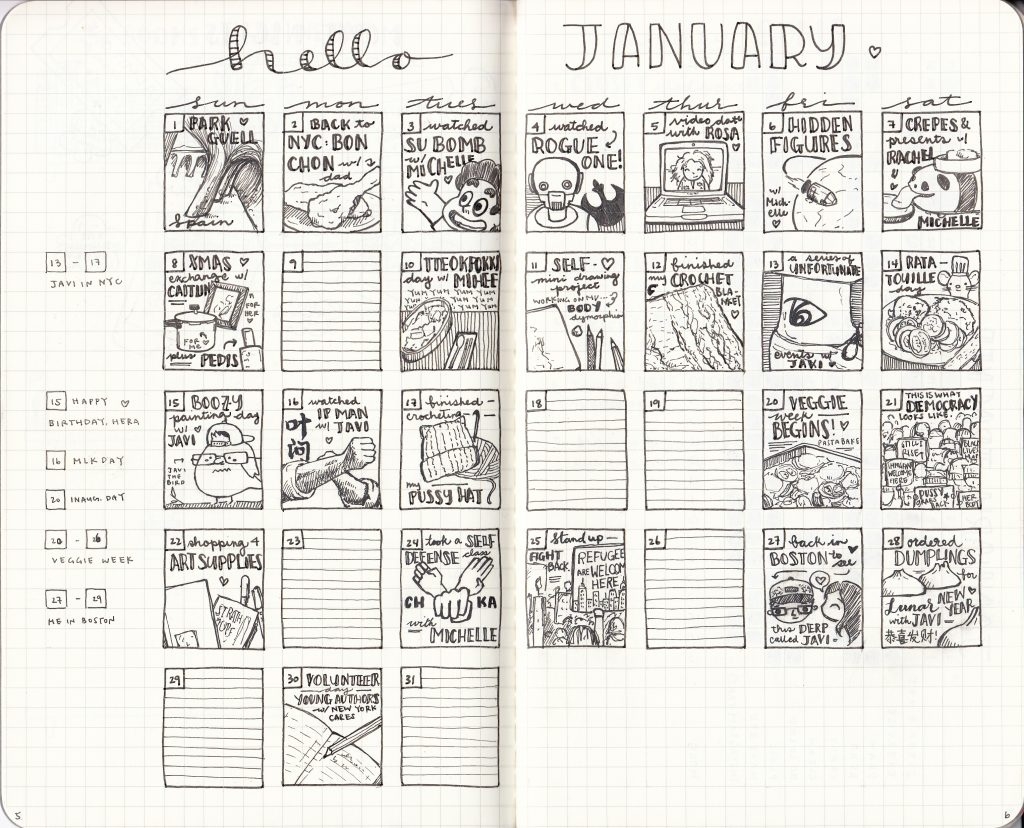 hello JANUARY
sun mon tues wed thur fri sat
1 PARK
GUELL
Spain
2 BACK to
NYC: BON
CHON w/
dad
3 watched
SU BOMB
w/
MICHELLE
4 watched
ROGUE
ONE!
5 video date
with ROSA
6 HIDDEN
FIGURES
w/
Mich-
elle
7 CREPES &
presents w/
RACHEL
MICHELLE
13 - 17
JAVI IN NYC
8 XMAS
exchange w/
CAITLIN
FOR
HER
FOR
ME
plus PEDIS
9
10 TTEOKPOKKI
day w/ MIHEE
YUM YUM YUM YUM
YUM YUM YUM
11 SELF-
mini drawing
project
WORKING ON MY
BODY
dysmorphia
12 finished
my CROCHET
BLA
NKET
13 a series of
UNFORTUNATE
events w/
JAVI
14 RATA-
TOUILLE
day
15 HAPPY
BIRTHDAY, HERA
16 MLK DAY
20 INAUG. DAY
15 BOOZY
painting day
w/
JAVI
JAVI
THE
BIRD
16 watched
IP MAN
w/ JAVI
叶
问
17 finished
crocheting
my
PUSSY HAT
18
19
20 VEGGIE
week
BEGINS!
PASTA BAKE
21 THIS IS WHAT
DEMOCRACY
LOOKS LIKE.
STILL I
RISE
BLACK
LIVES
IMMIGRANTS
WELCOME
HERE
PUSSY
GRABS
BACK
HER
BODY
20 - 26
VEGGIE WEEK
27 - 29
ME IN BOSTON
22 shopping 4
ART SUPPLIES
23
24 took a SELF
DEFENSE class
CH KA
with
MICHELLE
25 Stand up
FIGHT
BACK
REFUGEES
ARE WELCOME
HERE
26
27 back in
BOSTON
to see
this DERP
called JAVI
28 ordered
DUMPLINGS
for
Lunar NEW
YEAR
with JAVI
恭喜发财!
29
30 VOLUNTEER
day
YOUNG AUTHORS
w/ NEW YORK
CARES
31
5
6